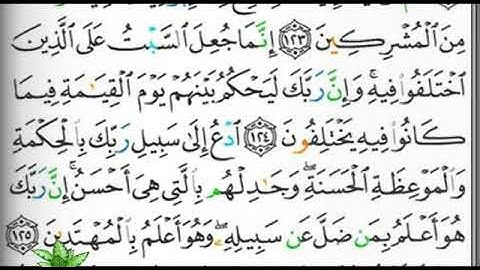 مِنَ ٱلْمُشْرِكِينَ ١٢٣ إِنَّمَا جُعِلَ ٱلسَّبْتُ عَلَى ٱلَّذِينَ
ٱخْتَلَفُوا۟ فِيهِ ۚ وَإِنَّ رَبَّكَ لَيَحْكُمُ بَيْنَهُمْ يَوْمَ ٱلْقِيَٰمَةِ فِيمَا
كَانُوا۟ فِيهِ يَخْتَلِفُونَ ١٢٤ ٱدْعُ إِلَىٰ سَبِيلِ رَبِّكَ بِٱلْحِكْمَةِ
وَٱلْمَوْعِظَةِ ٱلْحَسَنَةِ ۖ وَجَٰدِلْهُم بِٱلَّتِى هِىَ أَحْسَنُ ۚ إِنَّ رَبَّكَ
هُوَ أَعْلَمُ بِمَن ضَلَّ عَن سَبِيلِهِۦ ۖ وَهُوَ أَعْلَمُ بِٱلْمُهْتَدِينَ ١٢٥